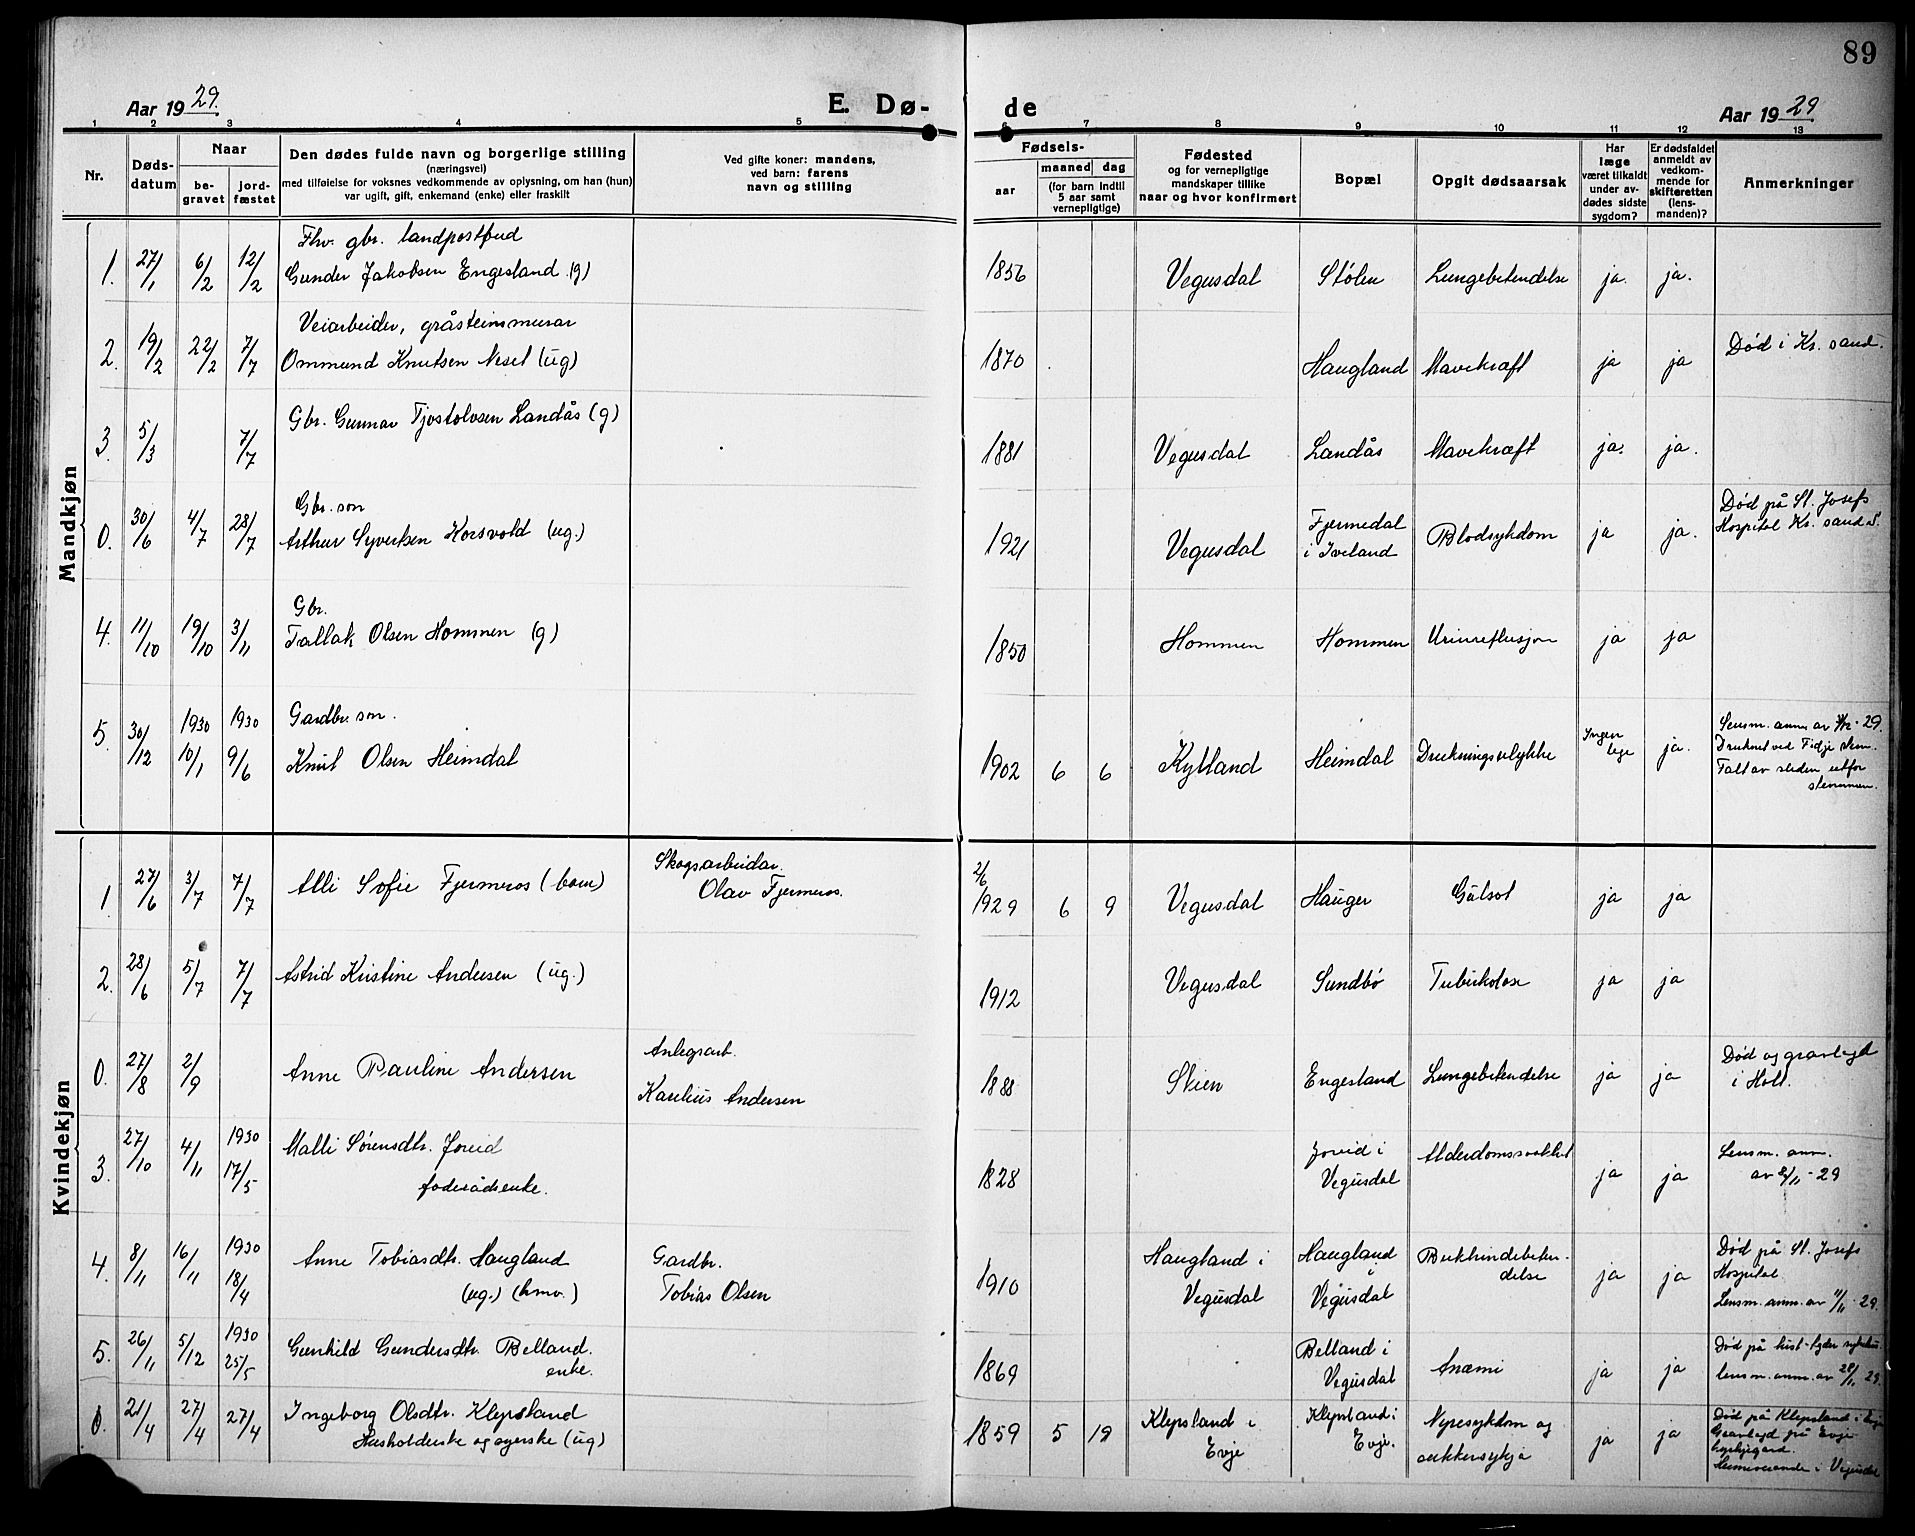 89
Aar 1929.
E. Dø- de
Aar 1929
1 2 3 4 5 6 7 8 9 10 11 12 13
Nr.
Døds-
datum
Naar
be-
gravet
jord-
fæstet
Den dødes fulde navn og borgerlige stilling
(næringsvei)
med tilføielse for voksnes vedkommende av oplysning, om han (hun)
var ugift, gift, enkemand (enke) eller fraskilt
Ved gifte koner: mandens,
ved barn: farens
navn og stilling
Fødsels-
aar
maaned dag
(for barn indtil
5 aar samt
vernepligtige)
Fødested
og for vernepligtige
mandskaper tillike
naar og hvor konfirmert
Bopæl
Opgit dødsaarsak
Har
læge
været tilkaldt
under av-
dødes sidste
sygdom?
Er dødsfaldet
anmeldt av
vedkom-
mende for
skifteretten
(lens-
manden)?
Anmerkninger
Mandkjøn
Fhv. gbr. landpostbud
1. 27/1 6/2 12/2 Gunder Jakobsen Engesland (g) 1856 Vegusdal Stølen Lungebetendelse ja. ja.
Veiarbeider, gråsteinsmurar
2. 19/2 22/2 7/7 Ommund Knutsen Neset (ug) 1870 Haugland Mavekræft ja ja Død i Kr. sand.
3. 5/3 7/7 Gbr. Gunnar Tjostolvsen Landås (g) 1881 Vegusdal Landås Mavekræft ja. ja.
Gbr. son
0. 30/6 4/7 28/7 Arthur Syvertsen Korsvold (ug.) 1921 Vegusdal Fjermedal
i Iveland Blodsykdom ja ja. Død på St. Josefs
Hospital Kr. sand S.
Gbr.
4. 11/10 19/10 3/11 Tallak Olsen Hommen (g) 1850 Hommen Hommen ja ja
Gardbr. son.
5. 30/12 1930 10/1 1930 9/6 Knut Olsen Heimdal 1902 6 6 Kylland Heimdal Drukningsulykke Ingen
lege ja. Lensm. anm. av -29.
Druknet ved Fidje stem.
Falt av sleden utfor
stemmen.
Kvindekjøn
1. 27/6 3/7 7/7 Alli Sofie Fjermeros (barn) Skogsarbeidar.
Olav Fjermeros. 2/6
1929 6 9 Vegusdal Hauger Gulsot ja ja
2. 28/6 5/7 7/7 Astrid Kristine Andersen (ug.) 1912 Vegusdal Sundbø Tuberkolose ja ja
0. 27/8 2/9 Anne Pauline Andersen Anlegsarb.
Karelius Andersen 1888 Skien Engesland Lungebetendelse ja ja Død og gravlagt
i Holt.
3. 27/10 4/11 1930 17/5 Malli Sørensdtr. Joreid
foderådsenke. 1828 Joreid i
Vegusdal Alderdomssvakhet ja ja Lensm. anm.
av 2/11-29
4. 8/11 16/11 1930 18/4 Anne Tobiasdtr. Haugland
(ug.) (hmv.) Gardbr.
Tobias Olsen 1910 Haugland i
Vegusdal Haugland
i
Vegusdal Bukhindebeten-
delse ja ja Død på St. Josefs
Hospital.
Lensm. anm. av 11/11-29.
5. 26/11 5/12 1930 25/5 Gunhild Gundersdtr. Belland.
enke. 1869 Belland i
Vegusdal Anæmi ja ja Død på
lensm. anm. av 29.
0. 21/4 27/4 27/4 Ingeborg Olsdtr. Klepsland
Husholderske og syerske (ug) 1859 5 19 Klepsland i
Evje Klepsland i
Evje. Nyresykdom og
sukkersykja ja ja Død på Klepsland i Evje
Gravlagd på Evje
kyrkjegard.
Heimeverande i Vegusdal